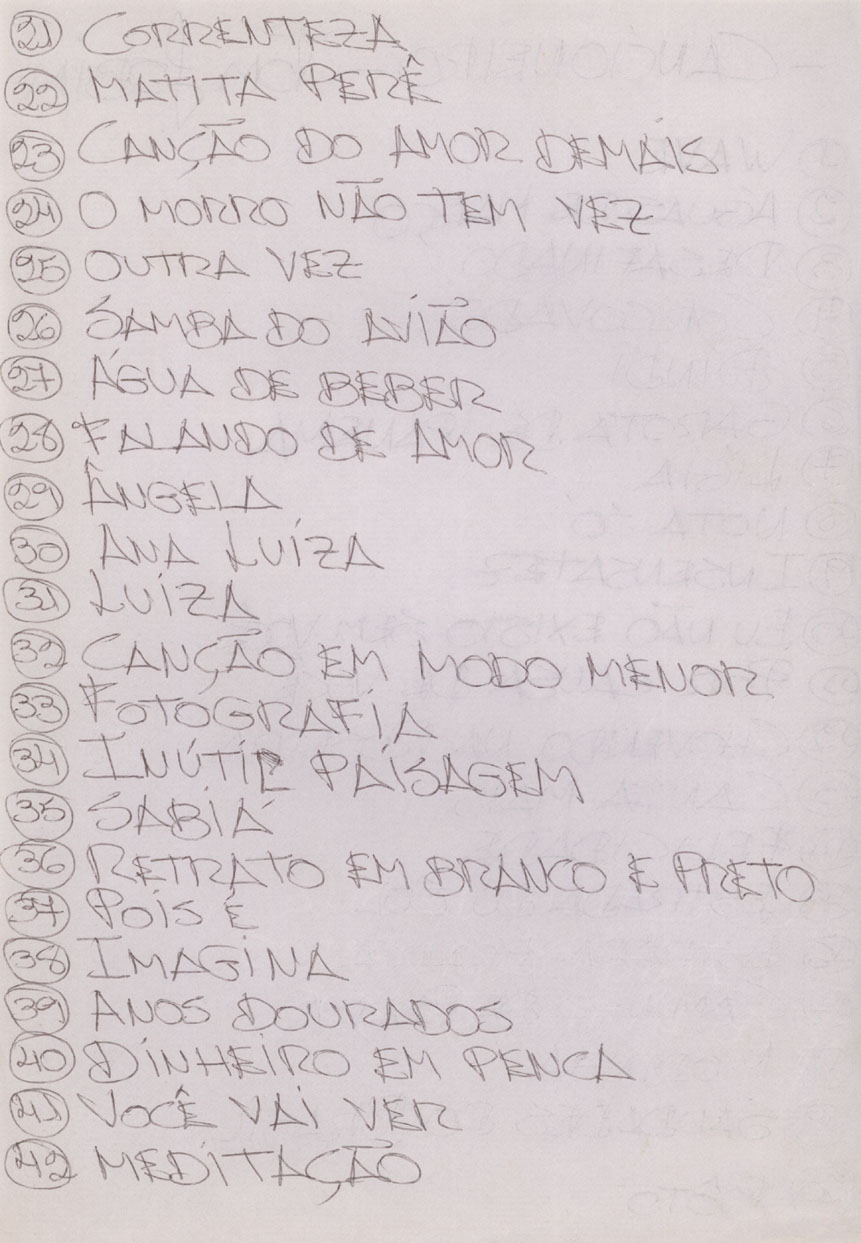 21 CORRENTEZA
22 MATITA PERÊ
23 CANÇÃO DO AMOR DEMAIS
24 O MORRO NÃO TEM VEZ
25 OUTRA VEZ
26 SAMBA DO AVIÃO
27 ÁGUA DE BEBER
28 FALANDO DE AMOR
29 ÂNGELA
30 ANA LUÍZA
31 LUÍZA
32 CANÇÃO EM MODO MENOR
33 FOTOGRAFIA
34 INÚTIL PAISAGEM
35 SABIÁ
36 RETRATO EM BRANCO E PRETO
37 POIS É
38 IMAGINA
39 ANOS DOURADOS
40 DINHEIRO EM PENCA
41 VOCÊ VAI VER
42 MEDITAÇÃO